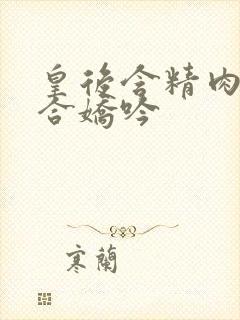 皇後含精肉
合嬌吟
寒蘭